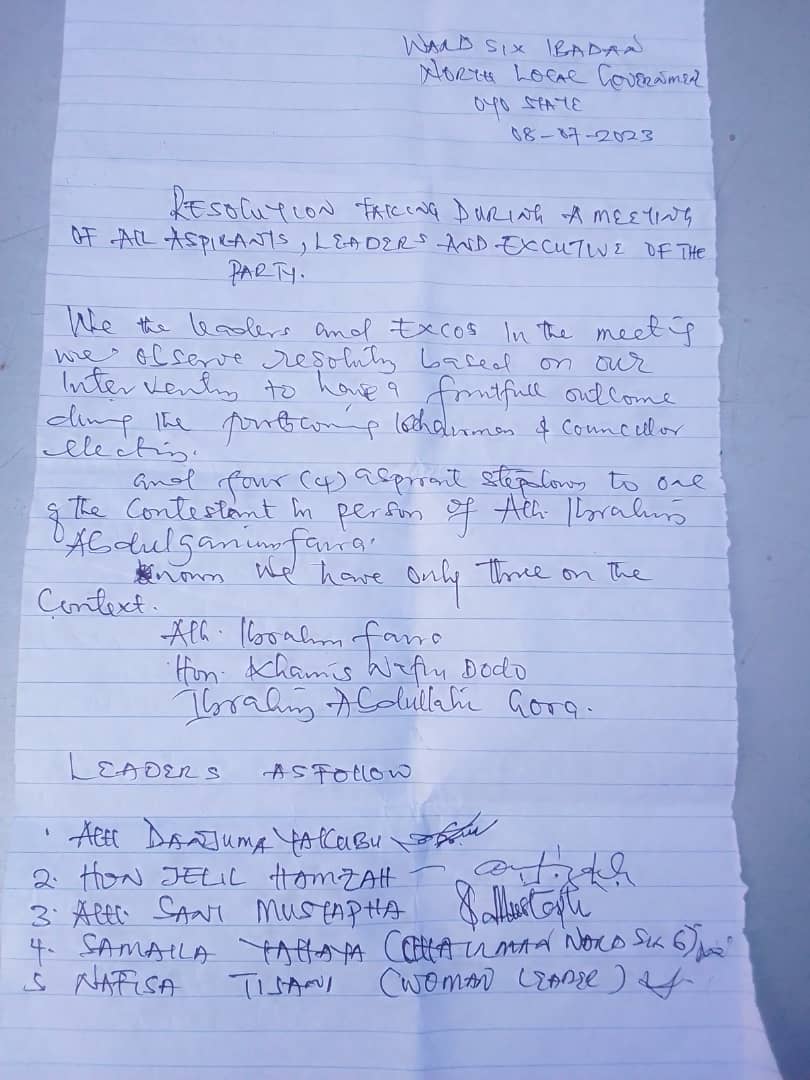 WARD SIX IBADAN
NORTH LOCAL GOVERNMEN
OYO STATE
08-07-2023
RESOLUTION TAKING DURING A MEETING
OF ALL ASPIRANTS, LEADERS AND EXCUTIVE OF THE
PARTY.
We the leaders and Excos In the meeting
we observe based on our
to have a fruitfull outcome
the & Councillor
election.
and four (4) aspirant stepdown to one
of the Contestant in person of Alh. Ibrahim
we have only three on the
Context.
Alh. Ibrahim
Hon. Khamis Dodo
Ibrahim Abdullahi Gora.
LEADERS AS FOLLOW
1 ALH DANJUMA YAKUBU
2. HON JELIL HAMZAH
3. ALH. SANI MUSTAPHA
4. SAMAILA YAHAYA (CHAIRMAN 6)
5 NAFISA TISANI (WOMAN LEADER)